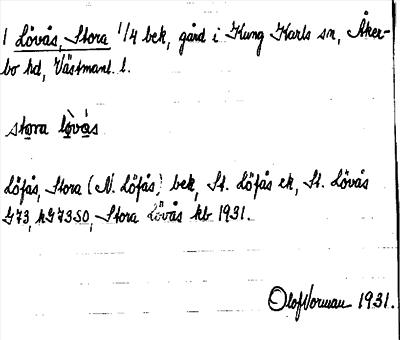 1 Lövås, Stora 1/4 bek, gård i Kung Karls sn, Åker-
bo hd, Västmanl. l.
stora lòvàs
Löfås, Stora (N. Löfås) bek, St. Löfås ek, St. Lövås
G73, hG73SO, Stora Lövås kb 1931.
Olof Norman 1931.